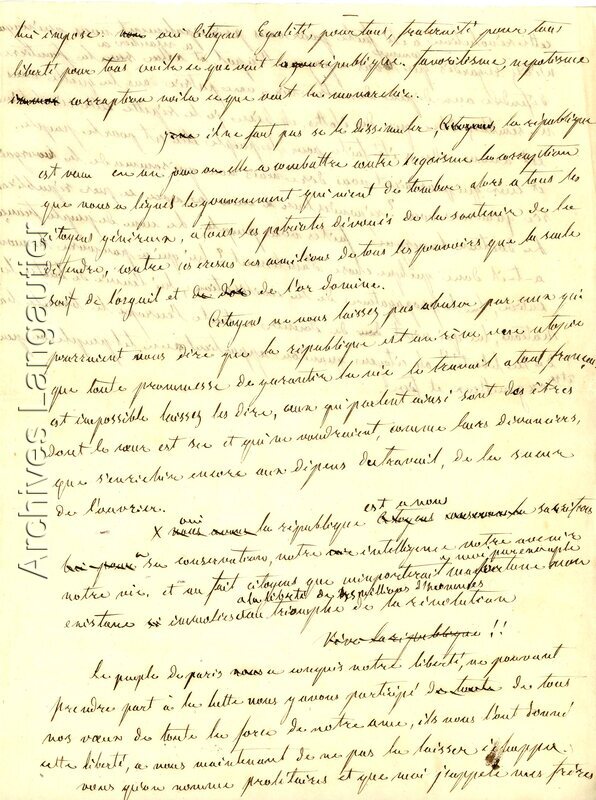 lui impose oui citoyens Egalité, pour tous, fraternité pour tous
liberté pour tous voila ce que veut la république. favoritisme, nepotisme
corruption voila ce que veut la monarchie.
il ne faut pas se le dissimuler, Citoyens, la république
est venu en un jour ou elle a combattre contre l'egoisme la corruption
que nous a légué le gouvernement qui vient de tomber alors a tous les
citoyens généreux, a tous les patriotes devoués de la soutenir de la
defendre, contre ces cresus ces ambitions de tous les pouvoirs que la seule
soif de l'orgueil et de l'or de l'or domine.
Citoyens ne nous laissez pas abuser par ceux qui
pourraient nous dire que la république est un rêve une utopie
que toute prommesse de garantir la vie le travail a tout français
est impossible laissez les dire, ceux qui parlent ainsi sont des êtres
dont le cœur est sec et qui ne voudraient, comme leurs devanciers,
que s'enrichir encore aux dépens du travail, de la sueur
de l'ouvrier.
est a nous
oui
X nous avons la république Citoyens conservons la sacrifions
sa conservation, notre intelligence notre avenir
a moi par exemple
notre vie. et au fait citoyens que m'importerait ma fortune mon
a la liberté de millions d'hommes
existance si immolés au triomphe de la révolution
Vive la république !!
Le peuple de paris nous a conquis notre liberté, ne pouvant
prendre part à la lutte nous y avons participé de toute de tous
nos vœux de toute la force de notre ame, ils nous l'ont donné
cette liberté, a nous maintenant de ne pas la laisser échapper.
vous qu'on nomme prolitaires et que moi j'appele mes frères
Archives Langautier